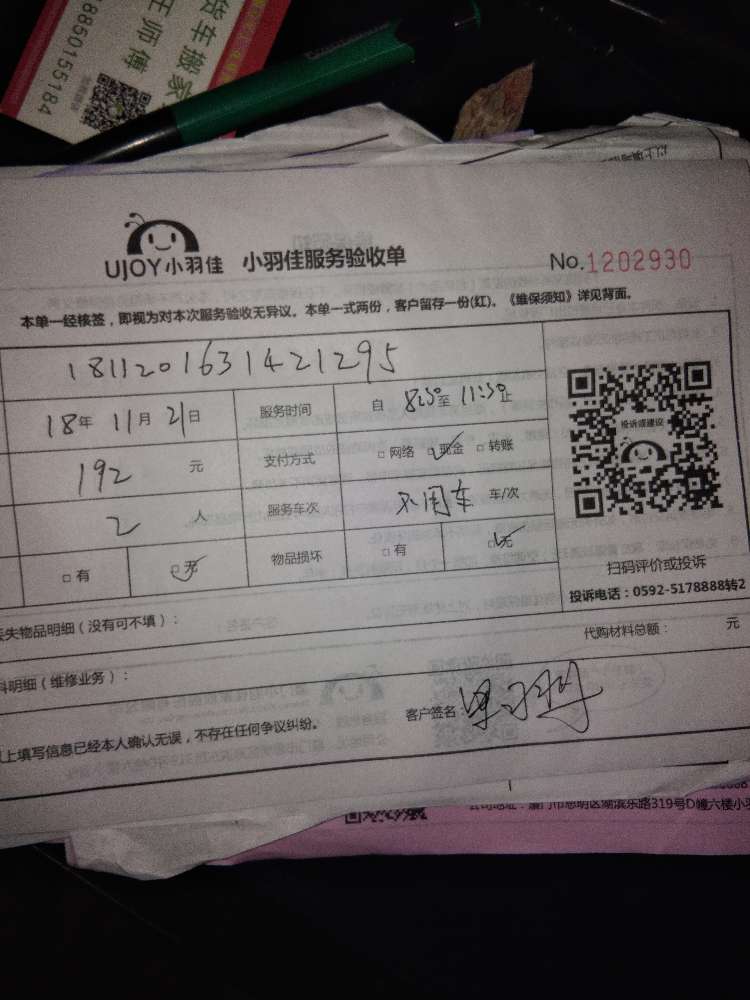 货车搬家
王师傅
18850155184
UJOY小羽佳 小羽佳服务验收单 No.1202930
本单一经核签，即视为对本次服务验收无异议。本单一式两份，客户留存一份(红)。《维保须知》详见背面。
1811201631421295
18年 11月 21日 服务时间 自 8:30至 11:30止
投诉或建议
192 元 支付方式 □网络 ☑现金 □转账
2 人 服务车次 不用车 车/次
□有 ☑无 物品损坏 □有 ☑无
扫码评价或投诉
投诉电话：0592-5178888转2
失物品明细（没有可不填）：
代购材料总额： 元
料明细（维修业务）：
上填写信息已经本人确认无误，不存在任何争议纠纷。 客户签名：
公司地址：厦门市思明区湖滨东路319号D幢六楼小羽